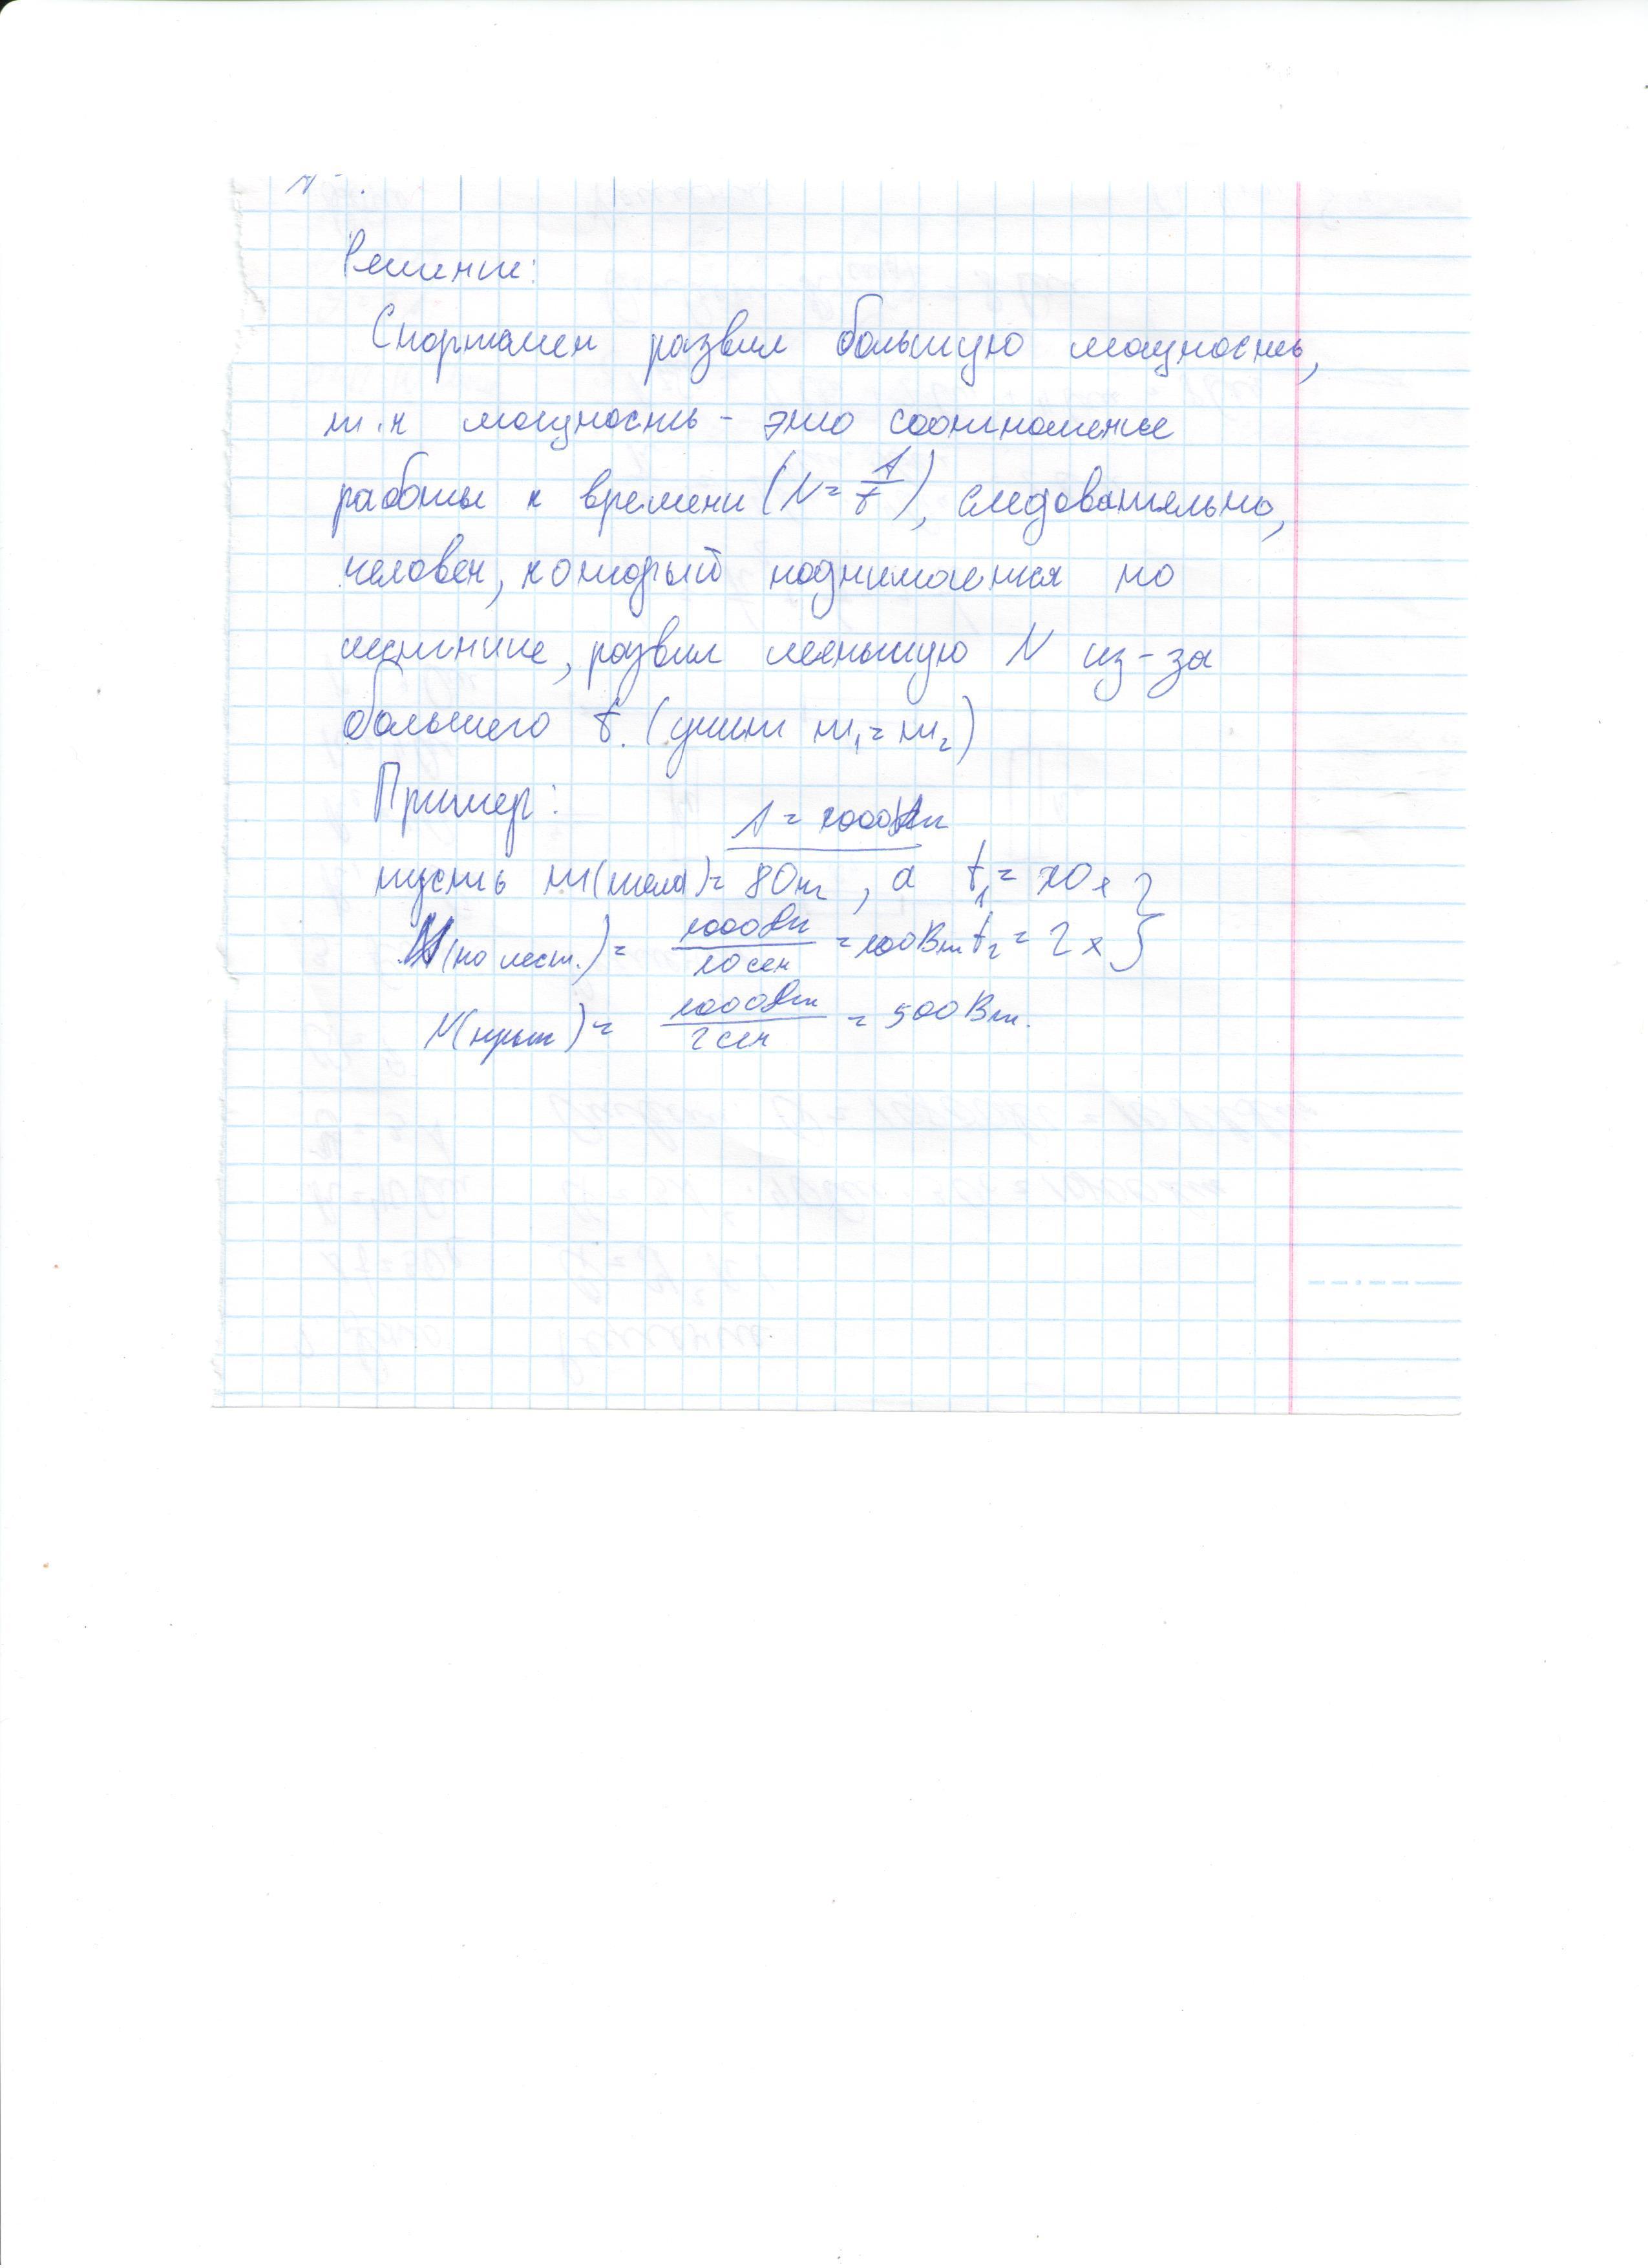 Решение:
Спортсмен развил большую мощность,
т.к мощность - это соотношение
работы к времени (N = A/t), следовательно,
человек, который поднимается по
лестнице, развил меньшую N из-за
большего t. (учит m₁ = m₂)
Пример:
A = 1000Дж
пусть m(тела) = 80кг, а t₁ = 10 x }
N(по лест.) = 1000Дж/10 сек = 100Вт t₂ = 2 x }
N(прыж) = 1000Дж/2 сек = 500Вт.